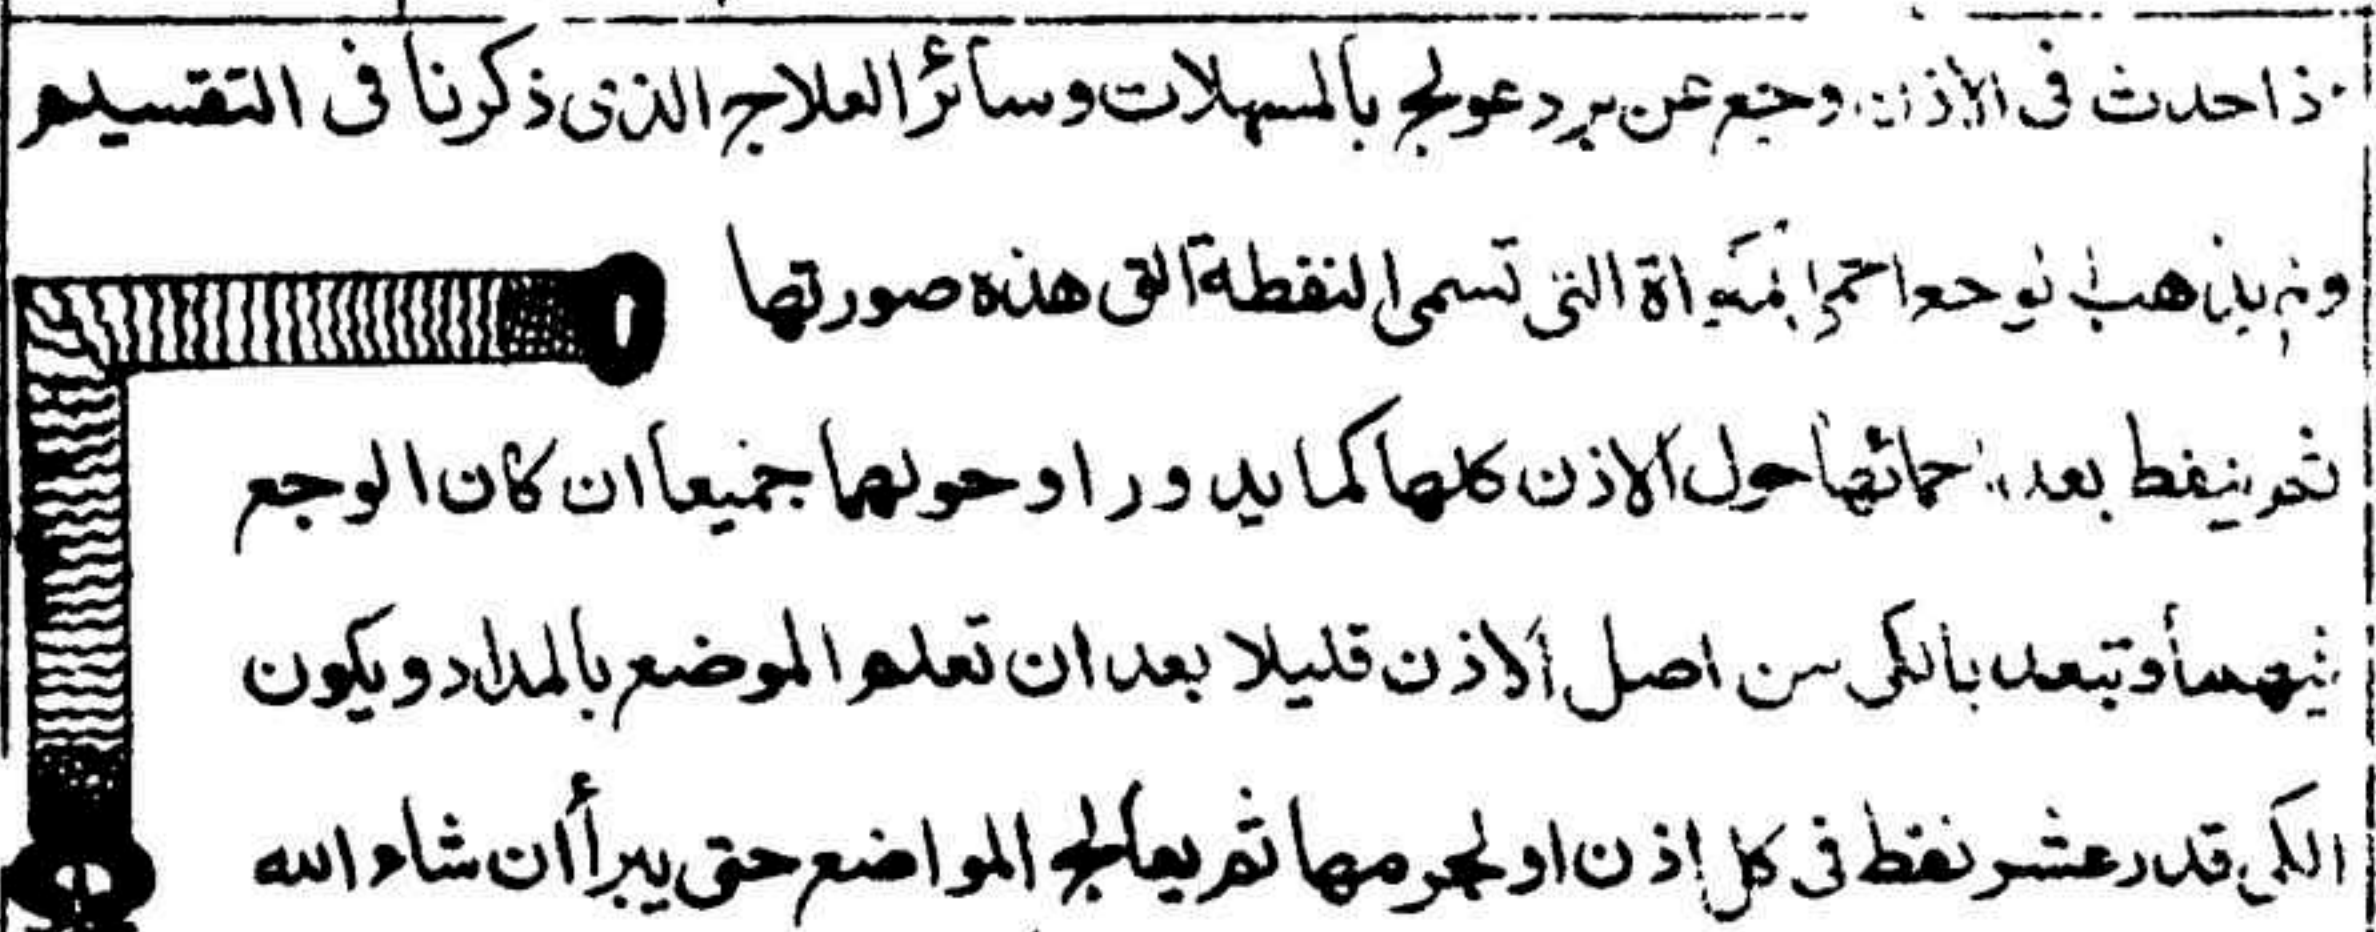 ذا حدث فى الأذن وجع عن برد عولج بالمسهلات وسائر العلاج الذى ذكرنا فى التقسيم
ولم يذهب الوجع احم المكواة التى تسمى النقطة التى هذه صورتها
ثم ينقط بعد حمائها حول الاذن كلها كما يدور او حولهما جميعا ان كان الوجع
فيهما وتبعد بالكى من اصل الاذن قليلا بعد ان تعلم الموضع بالمداد ويكون
الكى قدر عشر نقط فى كل اذن او لجرمها ثم يعالج المواضع حتى يبرأ ان شاء الله